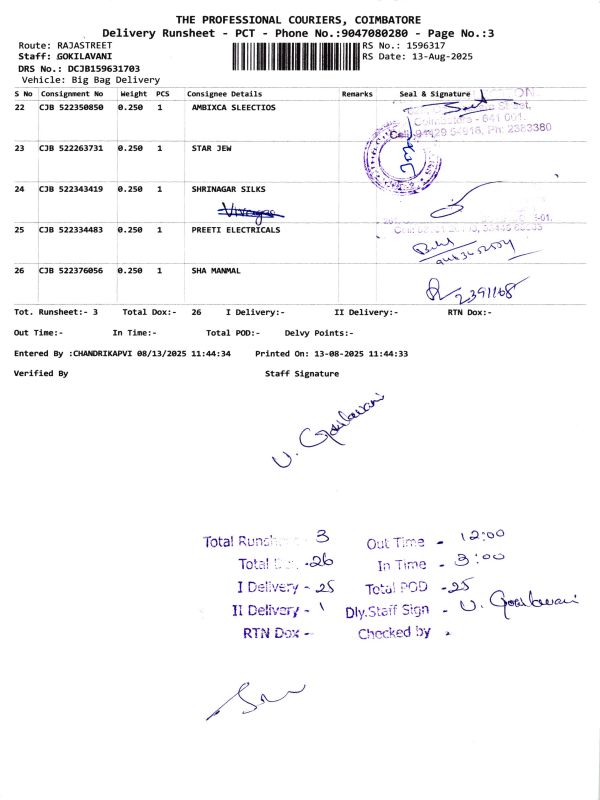 THE PROFESSIONAL COURIERS, COIMBATORE
Delivery Runsheet - PCT - Phone No.:9047080280 - Page No.:3
Route: RAJASTREET RS No.: 1596317
Staff: GOKILAVANI RS Date: 13-Aug-2025
DRS No.: DCJB159631703
Vehicle: Big Bag Delivery
S No Consignment No Weight PCS Consignee Details Remarks Seal & Signature
22 CJB 522350850 0.250 1 AMBIXCA SLEECTIOS
Coimbatore - 641 001.
Cell: 94429 54918, Ph: 2383380
23 CJB 522263731 0.250 1 STAR JEW
24 CJB 522343419 0.250 1 SHRINAGAR SILKS
25 CJB 522334483 0.250 1 PREETI ELECTRICALS
26 CJB 522376056 0.250 1 SHA MANMAL
2391168
Tot. Runsheet:- 3 Total Dox:- 26 I Delivery:- II Delivery:- RTN Dox:-
Out Time:- In Time:- Total POD:- Delvy Points:-
Entered By :CHANDRIKAPVI 08/13/2025 11:44:34 Printed On: 13-08-2025 11:44:33
Verified By Staff Signature
U. Gokilavani
Total Runsheet 3 Out Time - 12:00
Total - 26 In Time - 3:00
I Delivery - 25 Total POD - 25
II Delivery - 1 Dly.Staff Sign - U. Gokilavani
RTN Dox - Checked by -